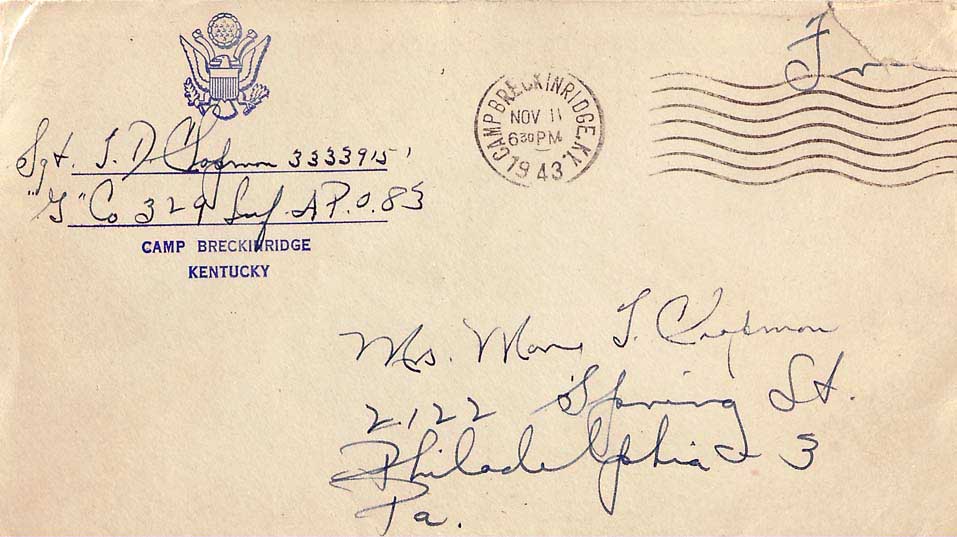 Sgt. J. D. Chapman 33339151
"G" Co 329 Inf. A.P.O. 83
CAMP BRECKINRIDGE
KENTUCKY
CAMP BRECKINRIDGE, KY.
NOV 11
6 30 PM
1943
Mrs. Mary J. Chapman
2122 Spring St.
Philadelphia 3
Pa.